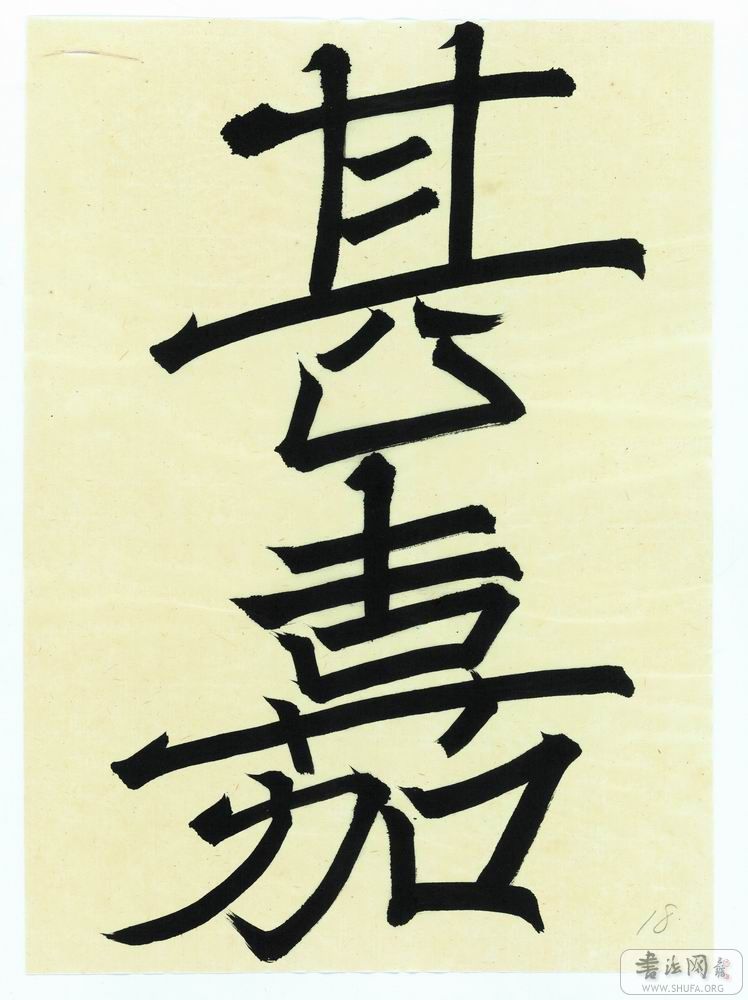 甚
嘉
18
书法网
WWW.SHUFA.ORG